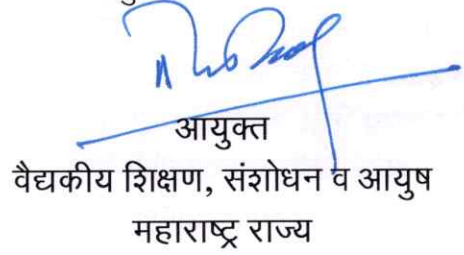 आयुक्त
वैद्यकीय शिक्षण, संशोधन व आयुष
महाराष्ट्र राज्य